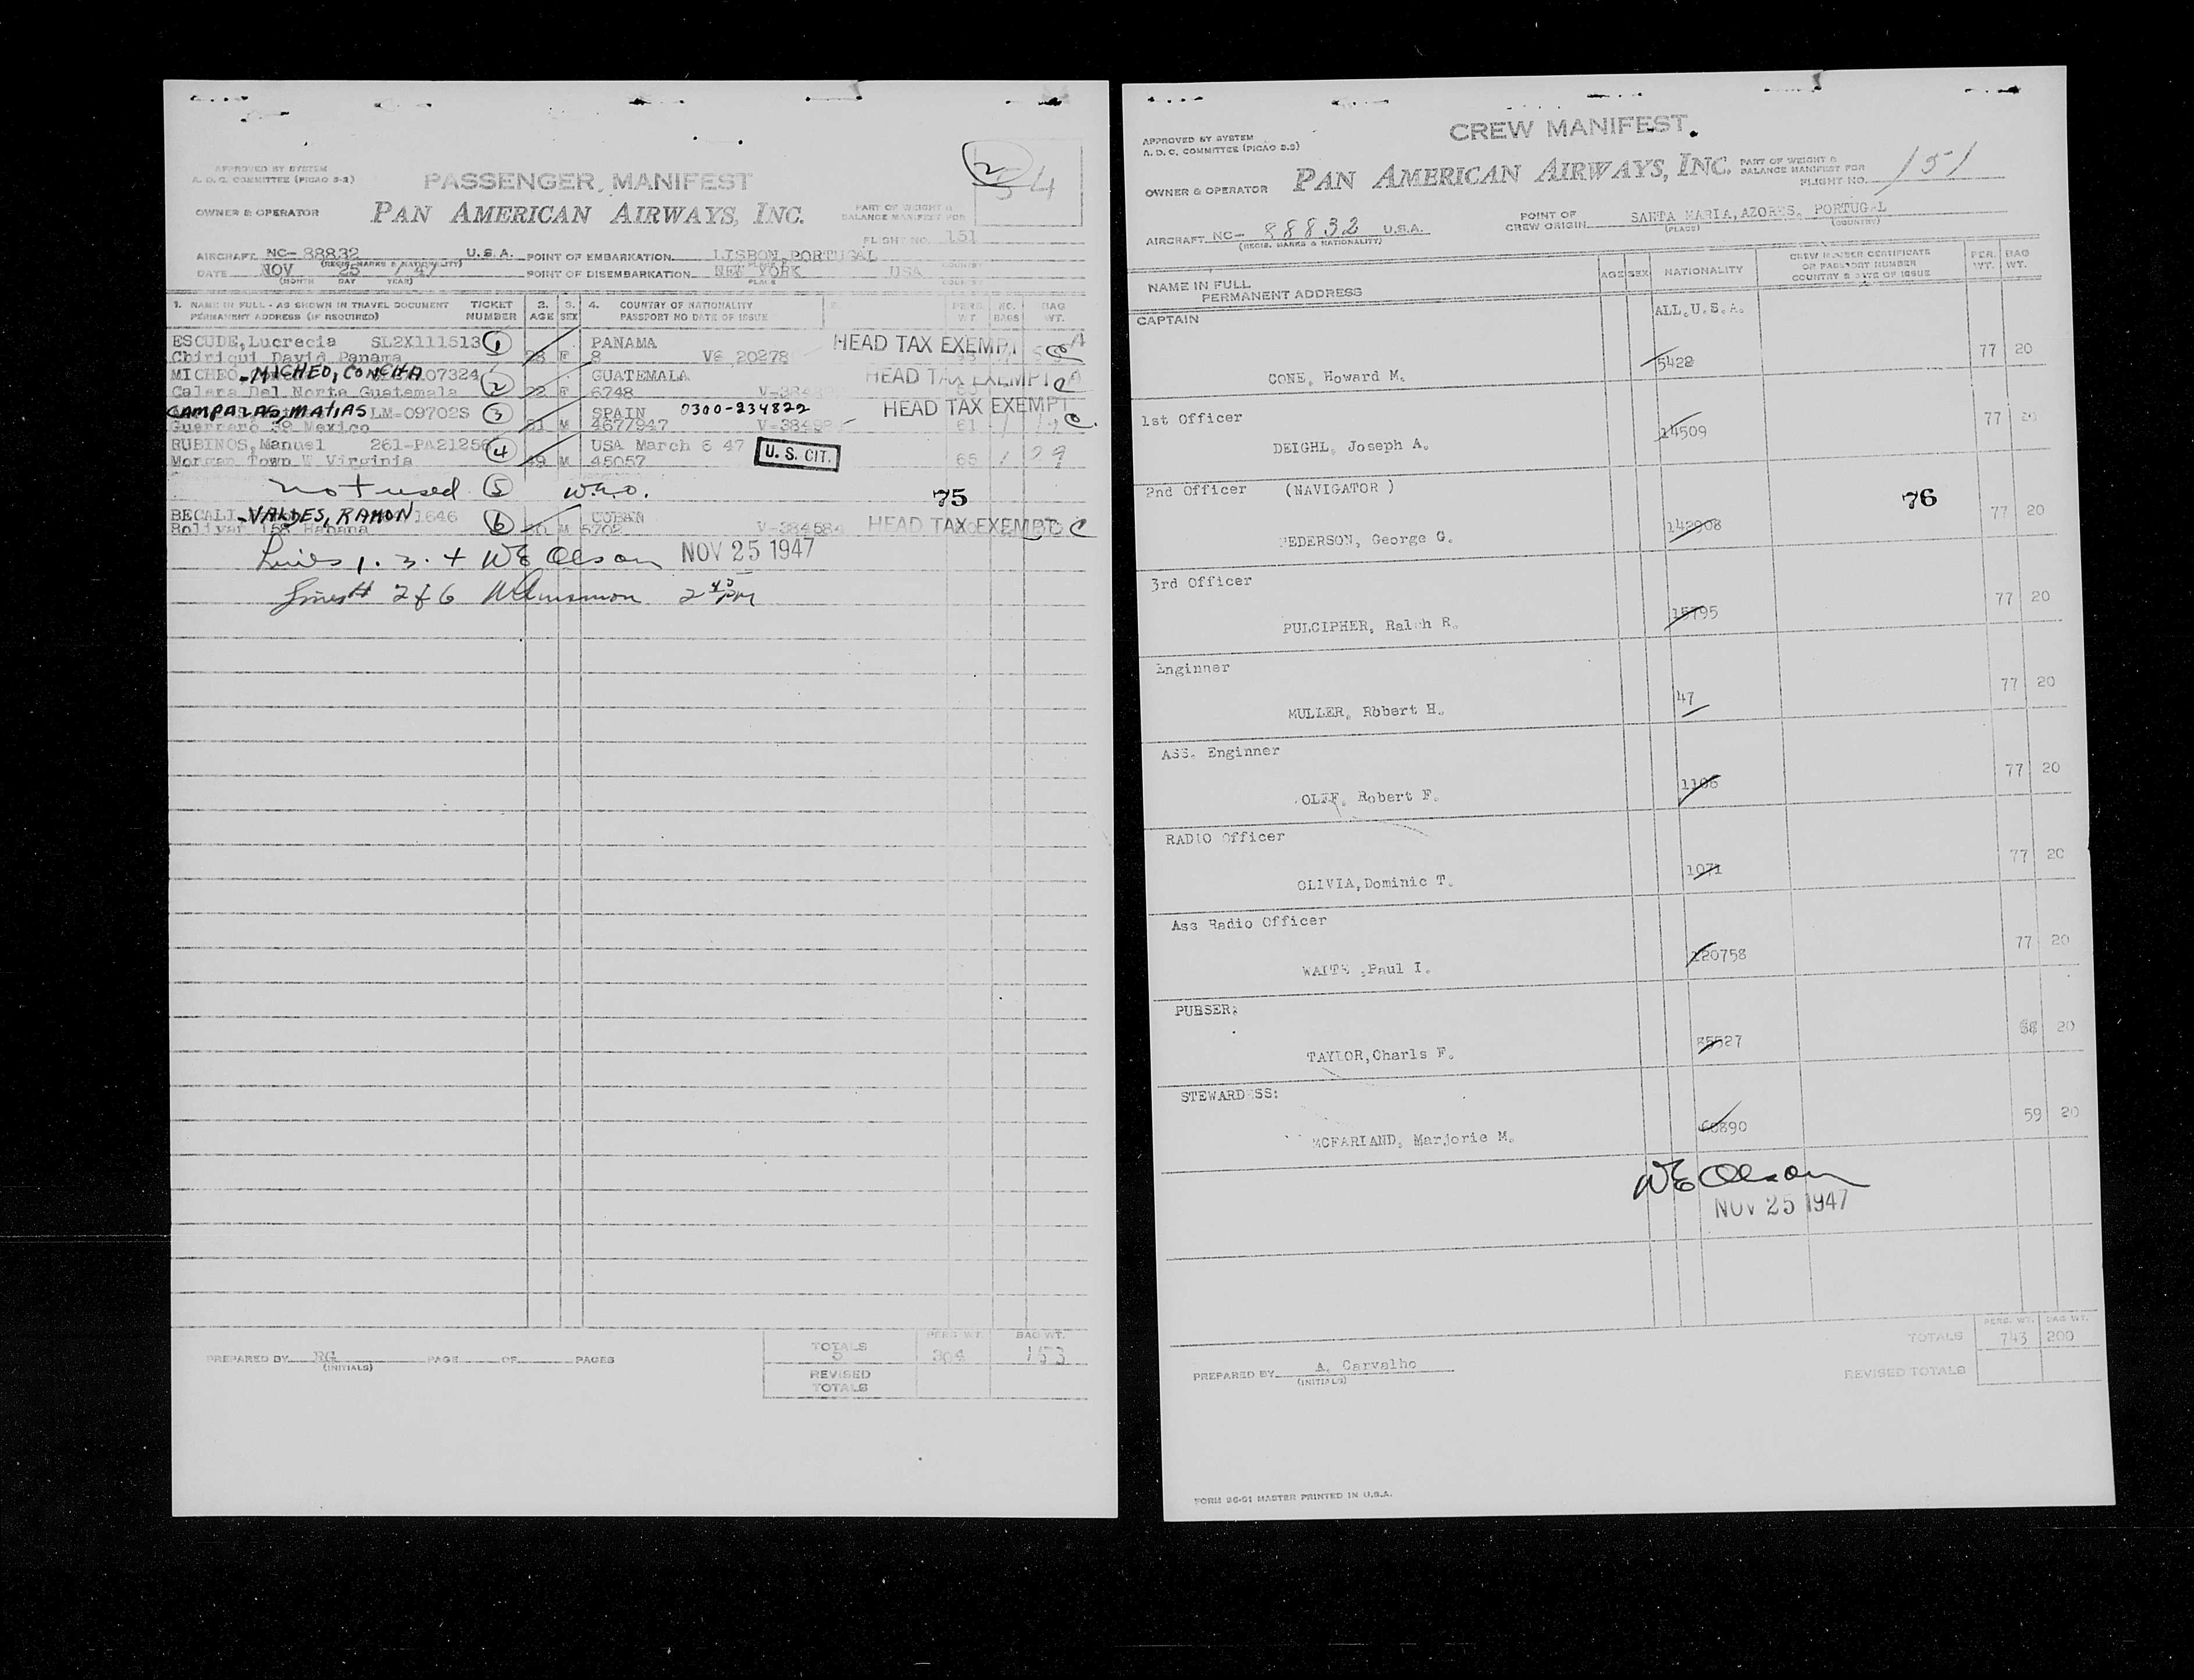 APPROVED BY SYSTEM
A. D. C. COMMITTEE (PICAO 5-3)
PASSENGER MANIFEST
OWNER & OPERATOR PAN AMERICAN AIRWAYS, INC.
PART OF WEIGHT &
BALANCE MANIFEST FOR
FLIGHT NO. 151
AIRCRAFT NC- 88832 U.S.A. POINT OF EMBARKATION LISBON, PORTUGAL
(REGIS. MARKS & NATIONALITY) COUNTRY
DATE NOV 25 / 47 POINT OF DISEMBARKATION NEW YORK USA
(MONTH DAY YEAR) PLACE COUNTRY
1. NAME IN FULL - AS SHOWN IN TRAVEL DOCUMENT TICKET 2. 3. 4. COUNTRY OF NATIONALITY PERS. NO. BAG
PERMANENT ADDRESS (IF REQUIRED) NUMBER AGE SEX PASSPORT NO DATE OF ISSUE WT. BAGS WT.
ESCUDE, Lucrecia SL2X111513 1 PANAMA HEAD TAX EXEMPT
Chiriqui David Panama 28 F 8 V6 20278
MICHEO - MICHEO, CONCHA 07324 2 GUATEMALA HEAD TAX EXEMPT
Calera Del Norte Guatemala F 6748
CAMPARAS, MATIAS LM-09702S 3 SPAIN 0300-234822 HEAD TAX EXEMPT C
Guerrero 39 Mexico M 4677947 61
RUBINOS, Manuel 4 USA March 6 47 U. S. CIT.
Morgan Town W Virginia 49 M 45057 65 1 29
not used 5 W.E.O. 75
BECALI - VALDES, RAMON 1646 6 CUBAN
Bolivar 158 Habana M 5702 V-384584 HEAD TAX EXEMPT C
Lines 1. 3. 4 WE Olson NOV 25 1947
Lines # 2 & 6 2 45 PM
TOTALS PERS WT. BAG WT.
5 304 153
PREPARED BY RG PAGE OF PAGES
(INITIALS)
REVISED
TOTALS
CREW MANIFEST
APPROVED BY SYSTEM
A. D. C. COMMITTEE (PICAO 5-3)
OWNER & OPERATOR PAN AMERICAN AIRWAYS, INC.
PART OF WEIGHT &
BALANCE MANIFEST FOR
FLIGHT NO. 151
AIRCRAFT NC- 88832 U.S.A. POINT OF CREW ORIGIN SANTA MARIA, AZORES, PORTUGAL
(REGIS. MARKS & NATIONALITY) (PLACE) (COUNTRY)
NAME IN FULL
PERMANENT ADDRESS
AGE SEX NATIONALITY
CREW MEMBER CERTIFICATE
OR PASSPORT NUMBER
COUNTRY & DATE OF ISSUE
PER. WT. BAG WT.
CAPTAIN ALL U.S.A.
CONE, Howard M. 5428 77 20
1st Officer
DEIGHL, Joseph A. 14509 77 20
2nd Officer (NAVIGATOR ) 76
PEDERSON, George G. 142908 77 20
3rd Officer
PULCIPHER, Ralph R. 15795 77 20
Enginner
MULLER, Robert H. 47 77 20
ASS. Enginner
Robert F. 1106 77 20
RADIO Officer
OLIVIA, Dominic T. 1071 77 20
Ass Radio Officer
WAITE, Paul I. 120758 77 20
PURSER:
TAYLOR, Charls F. 85527 68 20
STEWARDESS:
MCFARLAND, Marjorie M. 60890 59 20
WE Olson
NOV 25 1947
PERS. WT. BAG WT.
TOTALS 743 200
PREPARED BY A. Carvalho
(INITIALS)
REVISED TOTALS
FORM 96-91 MASTER PRINTED IN U.S.A.